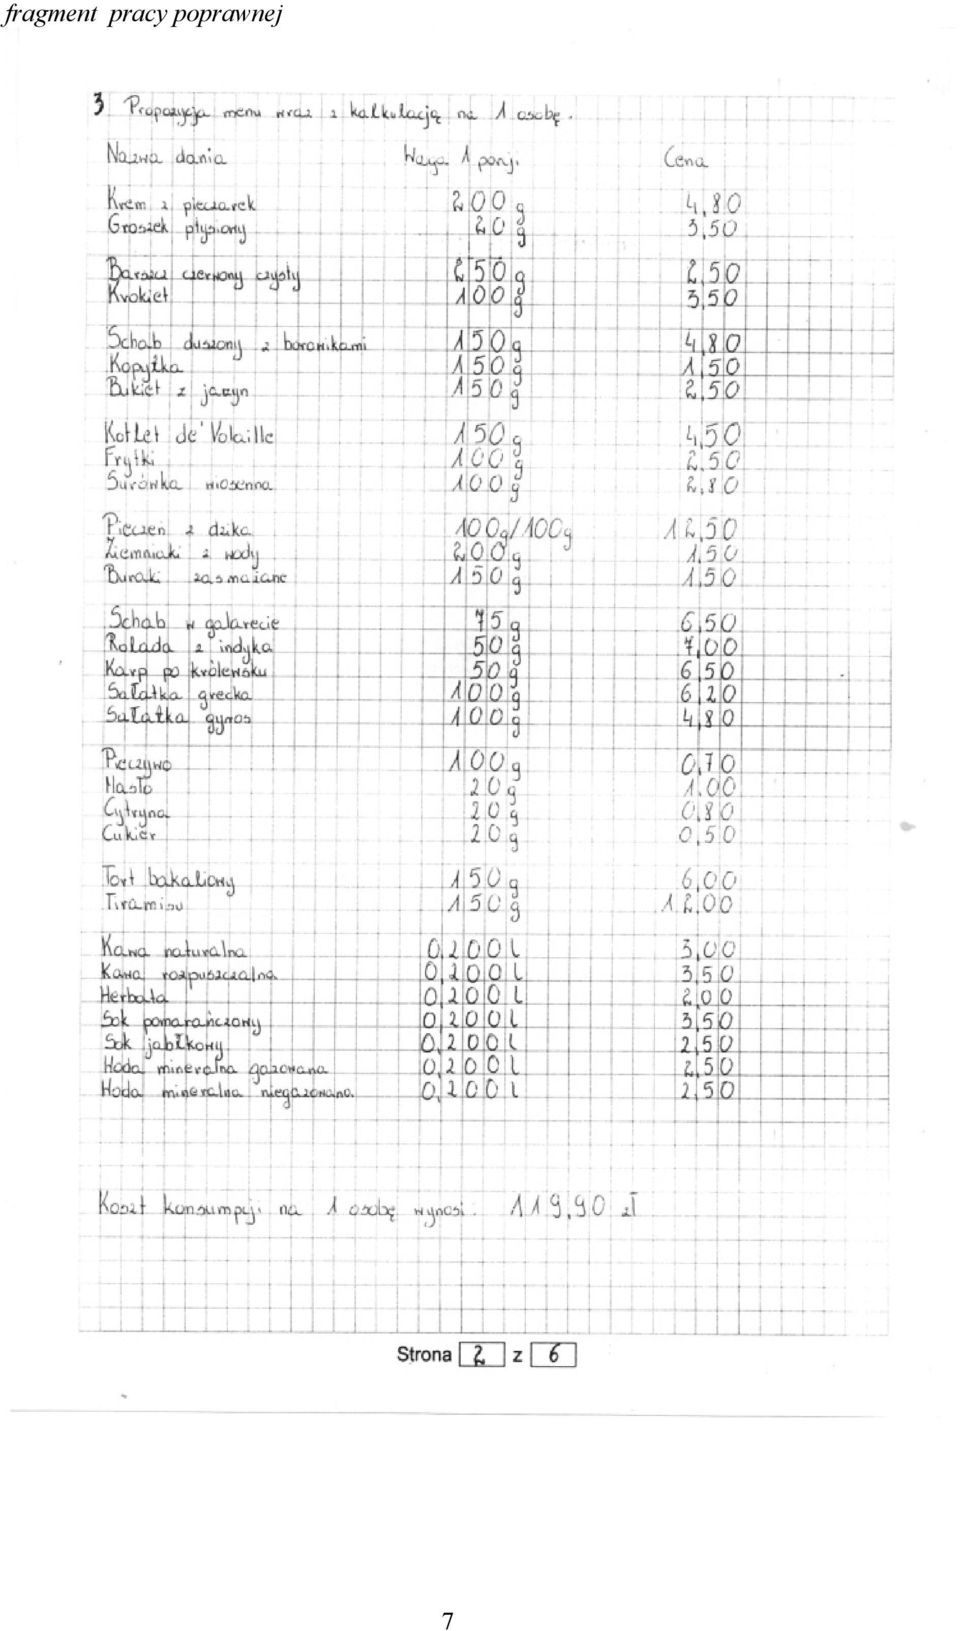 fragment pracy poprawnej
3 Propozycja menu wraz z kalkulacją na 1 osobę.
Nazwa dania Waga 1 porcji Cena
Krem z pieczarek 200g 4,80
Groszek ptysiowy 20g 3,50
Barszcz czerwony czysty 250g 2,50
Krokiet 100g 3,50
Schab duszony z borowikami 150g 4,80
Kopytka 150g 1,50
Bukiet z jarzyn 150g 2,50
Kotlet de' Volaille 150g 4,50
Frytki 100g 2,50
Surówka wiosenna 100g 2,80
Pieczeń z dzika 100g/100g 12,50
Ziemniaki z wody 200g 1,50
Buraki zasmażane 150g 1,50
Schab w galarecie 75g 6,50
Rolada z indyka 50g 7,00
Karp po królewsku 50g 6,50
Sałatka grecka 100g 6,20
Sałatka gyros 100g 4,80
Pieczywo 100g 0,70
Masło 20g 1,00
Cytryna 20g 0,80
Cukier 20g 0,50
Tort bakaliowy 150g 6,00
Tiramisu 150g 12,00
Kawa naturalna 0,200l 3,00
Kawa rozpuszczalna 0,200l 3,50
Herbata 0,200l 2,00
Sok pomarańczowy 0,200l 3,50
Sok jabłkowy 0,200l 2,50
Woda mineralna gazowana 0,200l 2,50
Woda mineralna niegazowana 0,200l 2,50
Koszt konsumpcji na 1 osobę wynosi: 119,90 zł
Strona 2 z 6
7